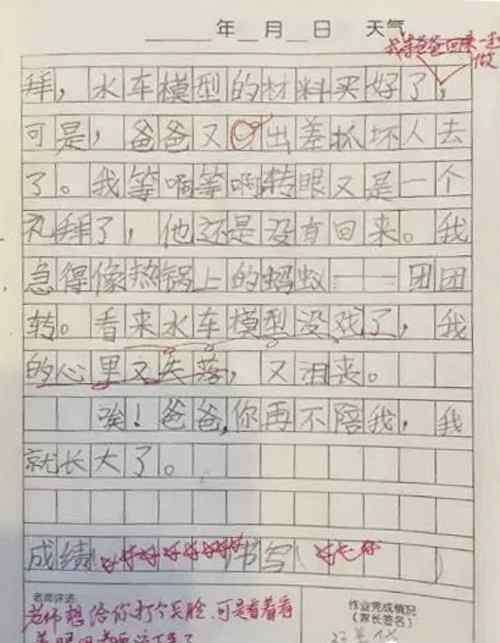 年 月 日 天气
我等爸爸回来一起做
拜，水车模型的材料买好了，
可是，爸爸又出差抓坏人去
了。我等啊等啊转眼又是一个
礼拜了，他还是没有回来。我
急得像热锅上的蚂蚁——团团
转。看来水车模型没戏了，我
的心里又失落，又沮丧。
唉！爸爸，你再不陪我，我
就长大了。
成绩（好好好好好好好）书写（ ）
老师评语
作业完成情况
（家长签名）
老师想给你打个笑脸，可是看着看
着眼泪